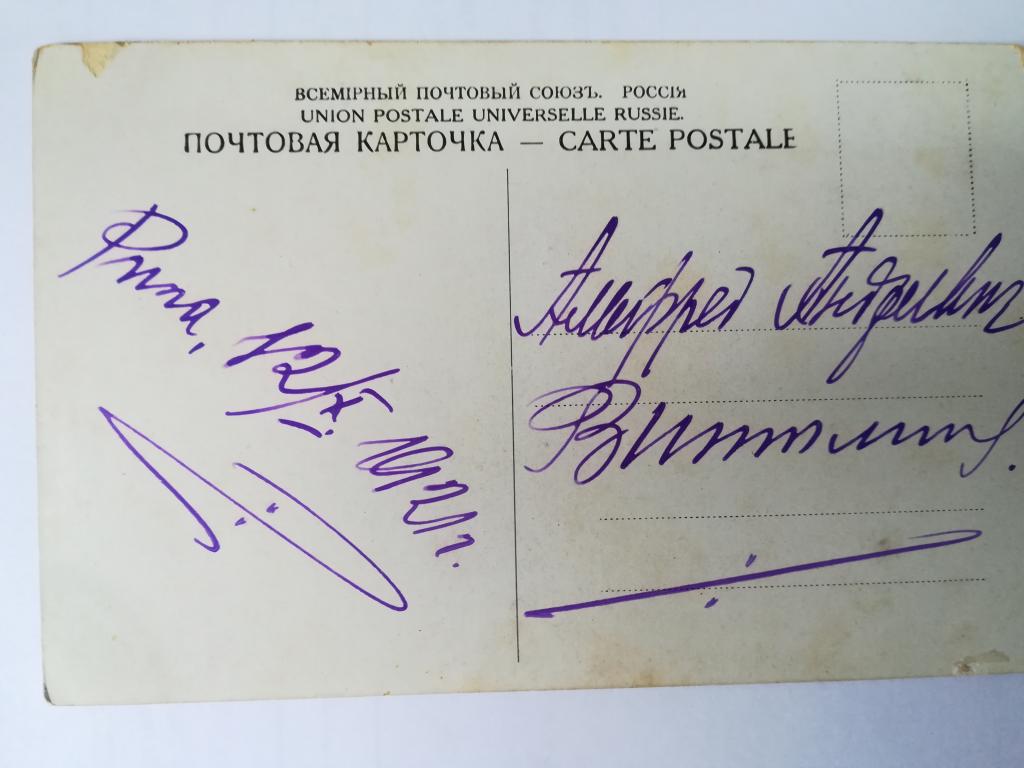 ВСЕМІРНЫЙ ПОЧТОВЫЙ СОЮЗЪ. РОССІЯ
UNION POSTALE UNIVERSELLE RUSSIE.
ПОЧТОВАЯ КАРТОЧКА — CARTE POSTALE
Рига, 12/X. 1921 г.
Альфред Андреевич